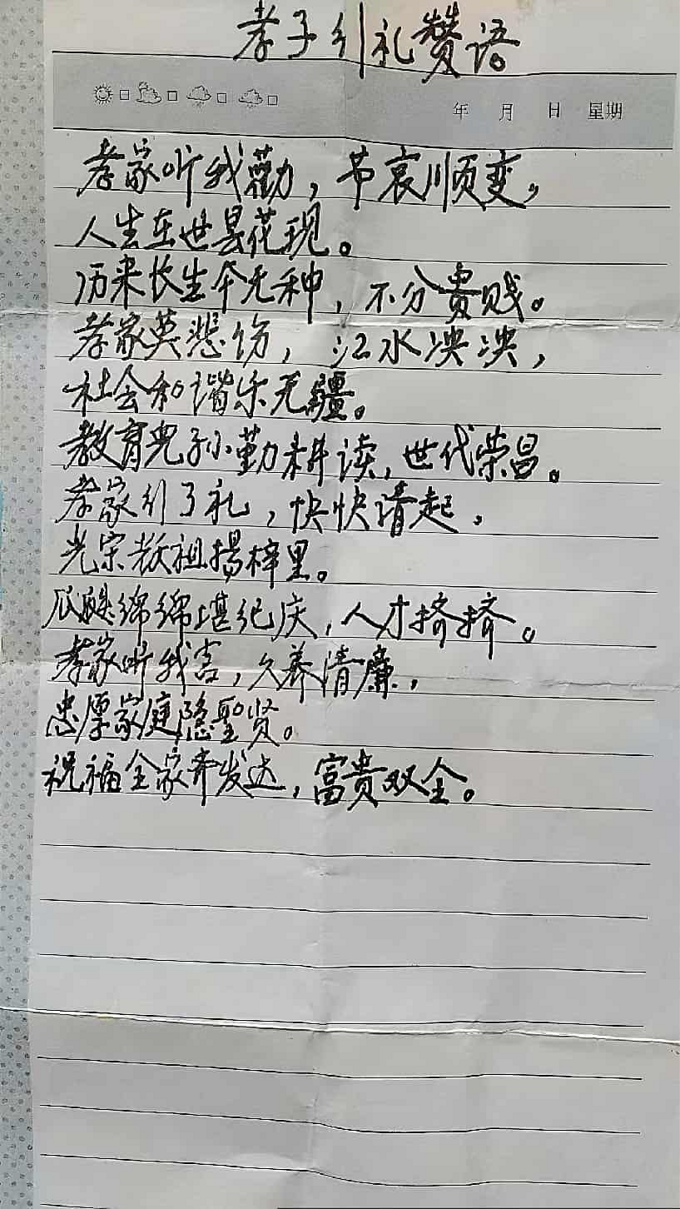 孝子引礼赞语
年 月 日 星期
孝家听我勸，节哀顺变。
人生在世昙花现。
历来长生本无种，不分贵贱。
孝家莫悲伤，江水泱泱，
社会和谐乐无疆。
教育儿孙勤耕读，世代荣昌。
孝家引了礼，快快请起，
光宗耀祖揚梓里。
瓜瓞绵绵堪纪庆，人才挤挤。
孝家听我言，久养清廉，
忠厚家庭隐聖贤。
祝福全家齐发达，富贵双全。